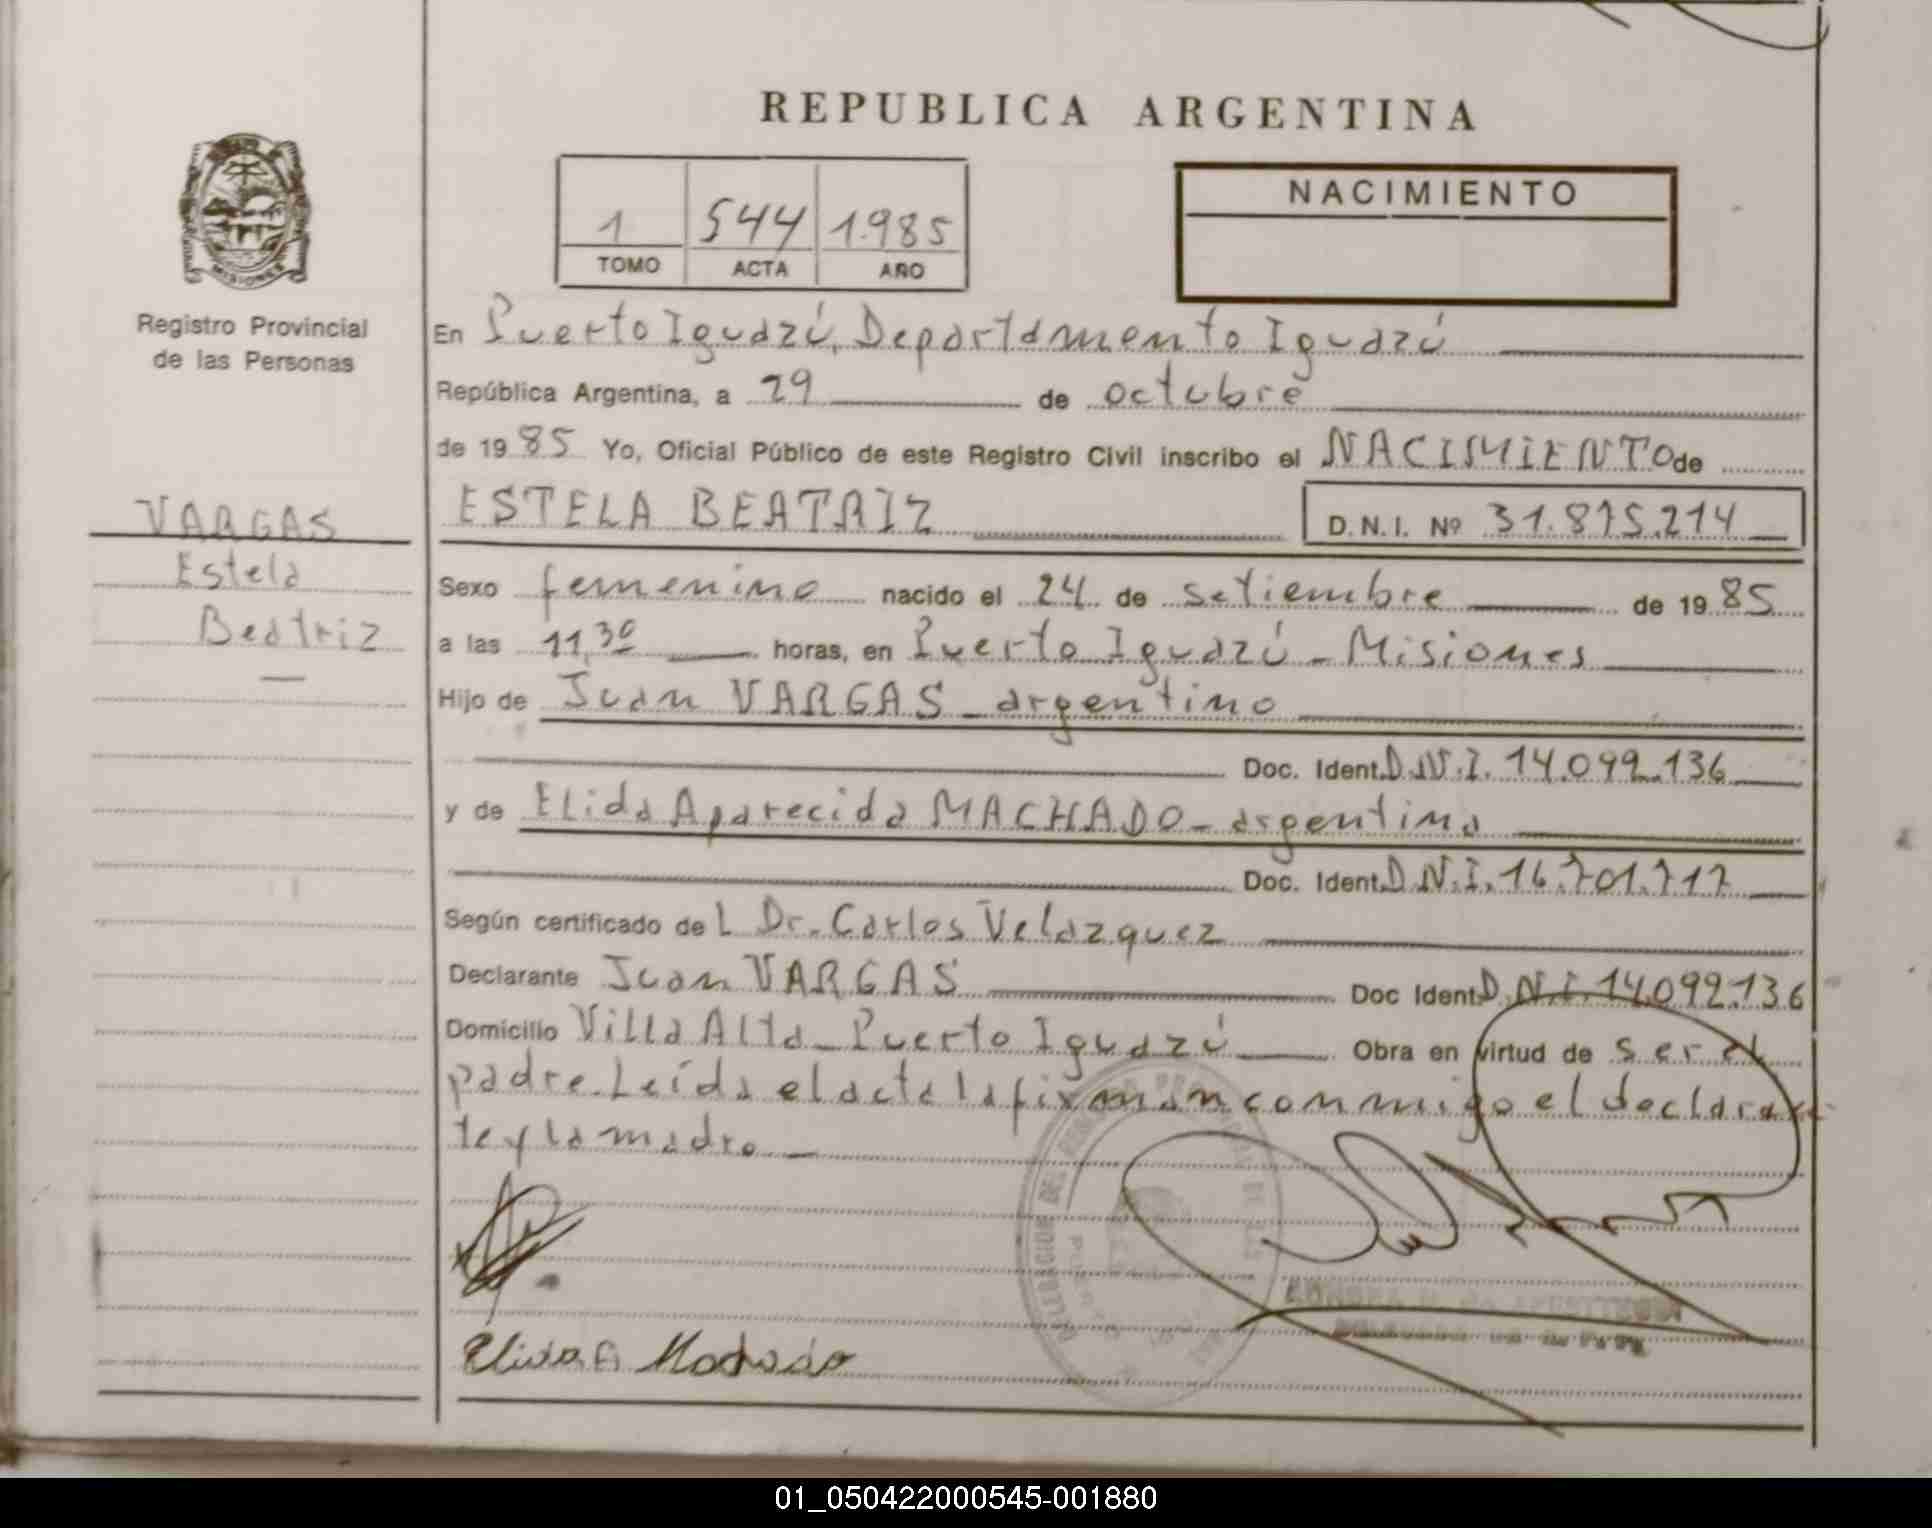 REPUBLICA ARGENTINA
MISIONES
Registro Provincial
de las Personas
1 544 1.985
TOMO ACTA AÑO
NACIMIENTO
En Puerto Iguazú, Departamento Iguazú
República Argentina, a 29 de octubre
de 1985 Yo, Oficial Público de este Registro Civil inscribo el NACIMIENTO de
VARGAS
Estela
Beatriz
ESTELA BEATRIZ D.N.I. Nº 31.875.214
Sexo femenino nacido el 24 de setiembre de 1985
a las 11,30 horas, en Puerto Iguazú - Misiones
Hijo de Juan VARGAS - argentino
Doc. Ident. D.N.I. 14.092.136
y de Elida Aparecida MACHADO - argentina
Doc. Ident. D.N.I. 16.701.717
Según certificado del Dr. Carlos Velazquez
Declarante Juan VARGAS Doc Ident. D.N.I. 14.092.136
Domicilio Villa Alta - Puerto Iguazú Obra en virtud de ser el
padre. Leída el acta la firman conmigo el declaran-
te y la madre. -
Elida A Machado
01_050422000545-001880